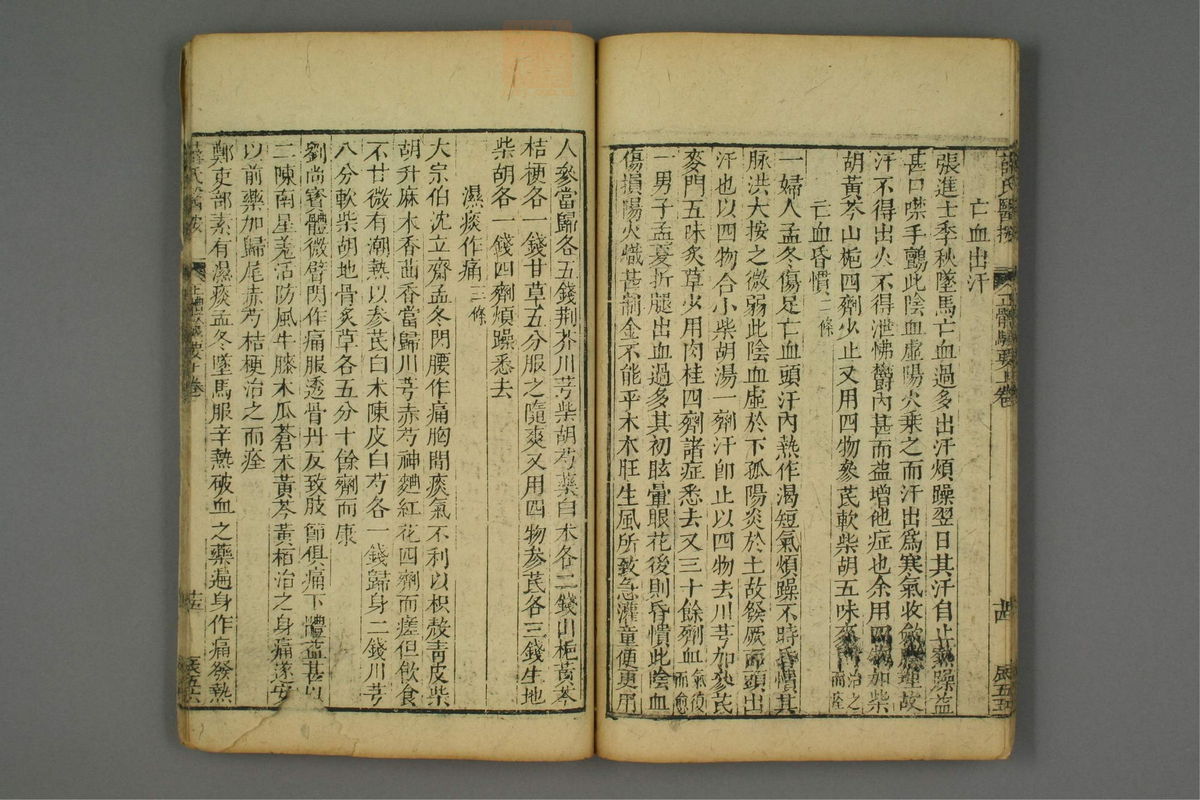 薛氏醫按
正體類要上卷
亡血出汗
張進士季秋墜馬亡血過多出汗煩躁翌日其汗自止熱躁益
甚口噤手顫此陰血虛陽火乘之而汗出爲寒氣收斂腠理故
汗不得出火不得泄怫欝內甚而益增他症也余用四物加柴
胡黃芩山梔四劑少止又用四物參芪軟柴胡五味麥治之而痊
亡血昏憒二條
一婦人孟冬傷足亡血頭汗內熱作渴短氣煩躁不時昏憒其
脉洪大按之微弱此陰血虛於下孤陽炎於上故發厥而頭出
汗也以四物合小柴胡湯一劑汗卽止以四物去川芎加參芪
麥門五味炙草少用肉桂四劑諸症悉去又三十餘劑血氣復而愈
一男子孟夏折腿出血過多其初眩暈眼花後則昏憒此陰血
傷損陽火熾甚制金不能平木木旺生風所致急灌童便更用
人參當歸各五錢荆芥川芎柴胡芍藥白术各二錢山梔黃芩
桔梗各一錢甘草五分服之隨爽又用四物參芪各三錢生地
柴胡各一錢四劑煩躁悉去
濕痰作痛三條
大宗伯沈立齋孟冬閃腰作痛胸間痰氣不利以枳殼青皮柴
胡升麻木香茴香當歸川芎赤芍神麯紅花四劑而瘥但飲食
不甘微有潮熱以參芪白术陳皮白芍各一錢歸身二錢川芎
八分軟柴胡地骨炙草各五分十餘劑而康
劉尚寶體微臂閃作痛服透骨丹反致肢節俱痛下體益甚以
二陳南星羌活防風牛膝木瓜蒼术黃芩黃栢治之身痛遂安
以前藥加歸尾赤芍桔梗治之而痊
鄭吏部素有濕痰孟冬墜馬服辛熱破血之藥遍身作痛發熱
薛氏醫按
正體類要上卷